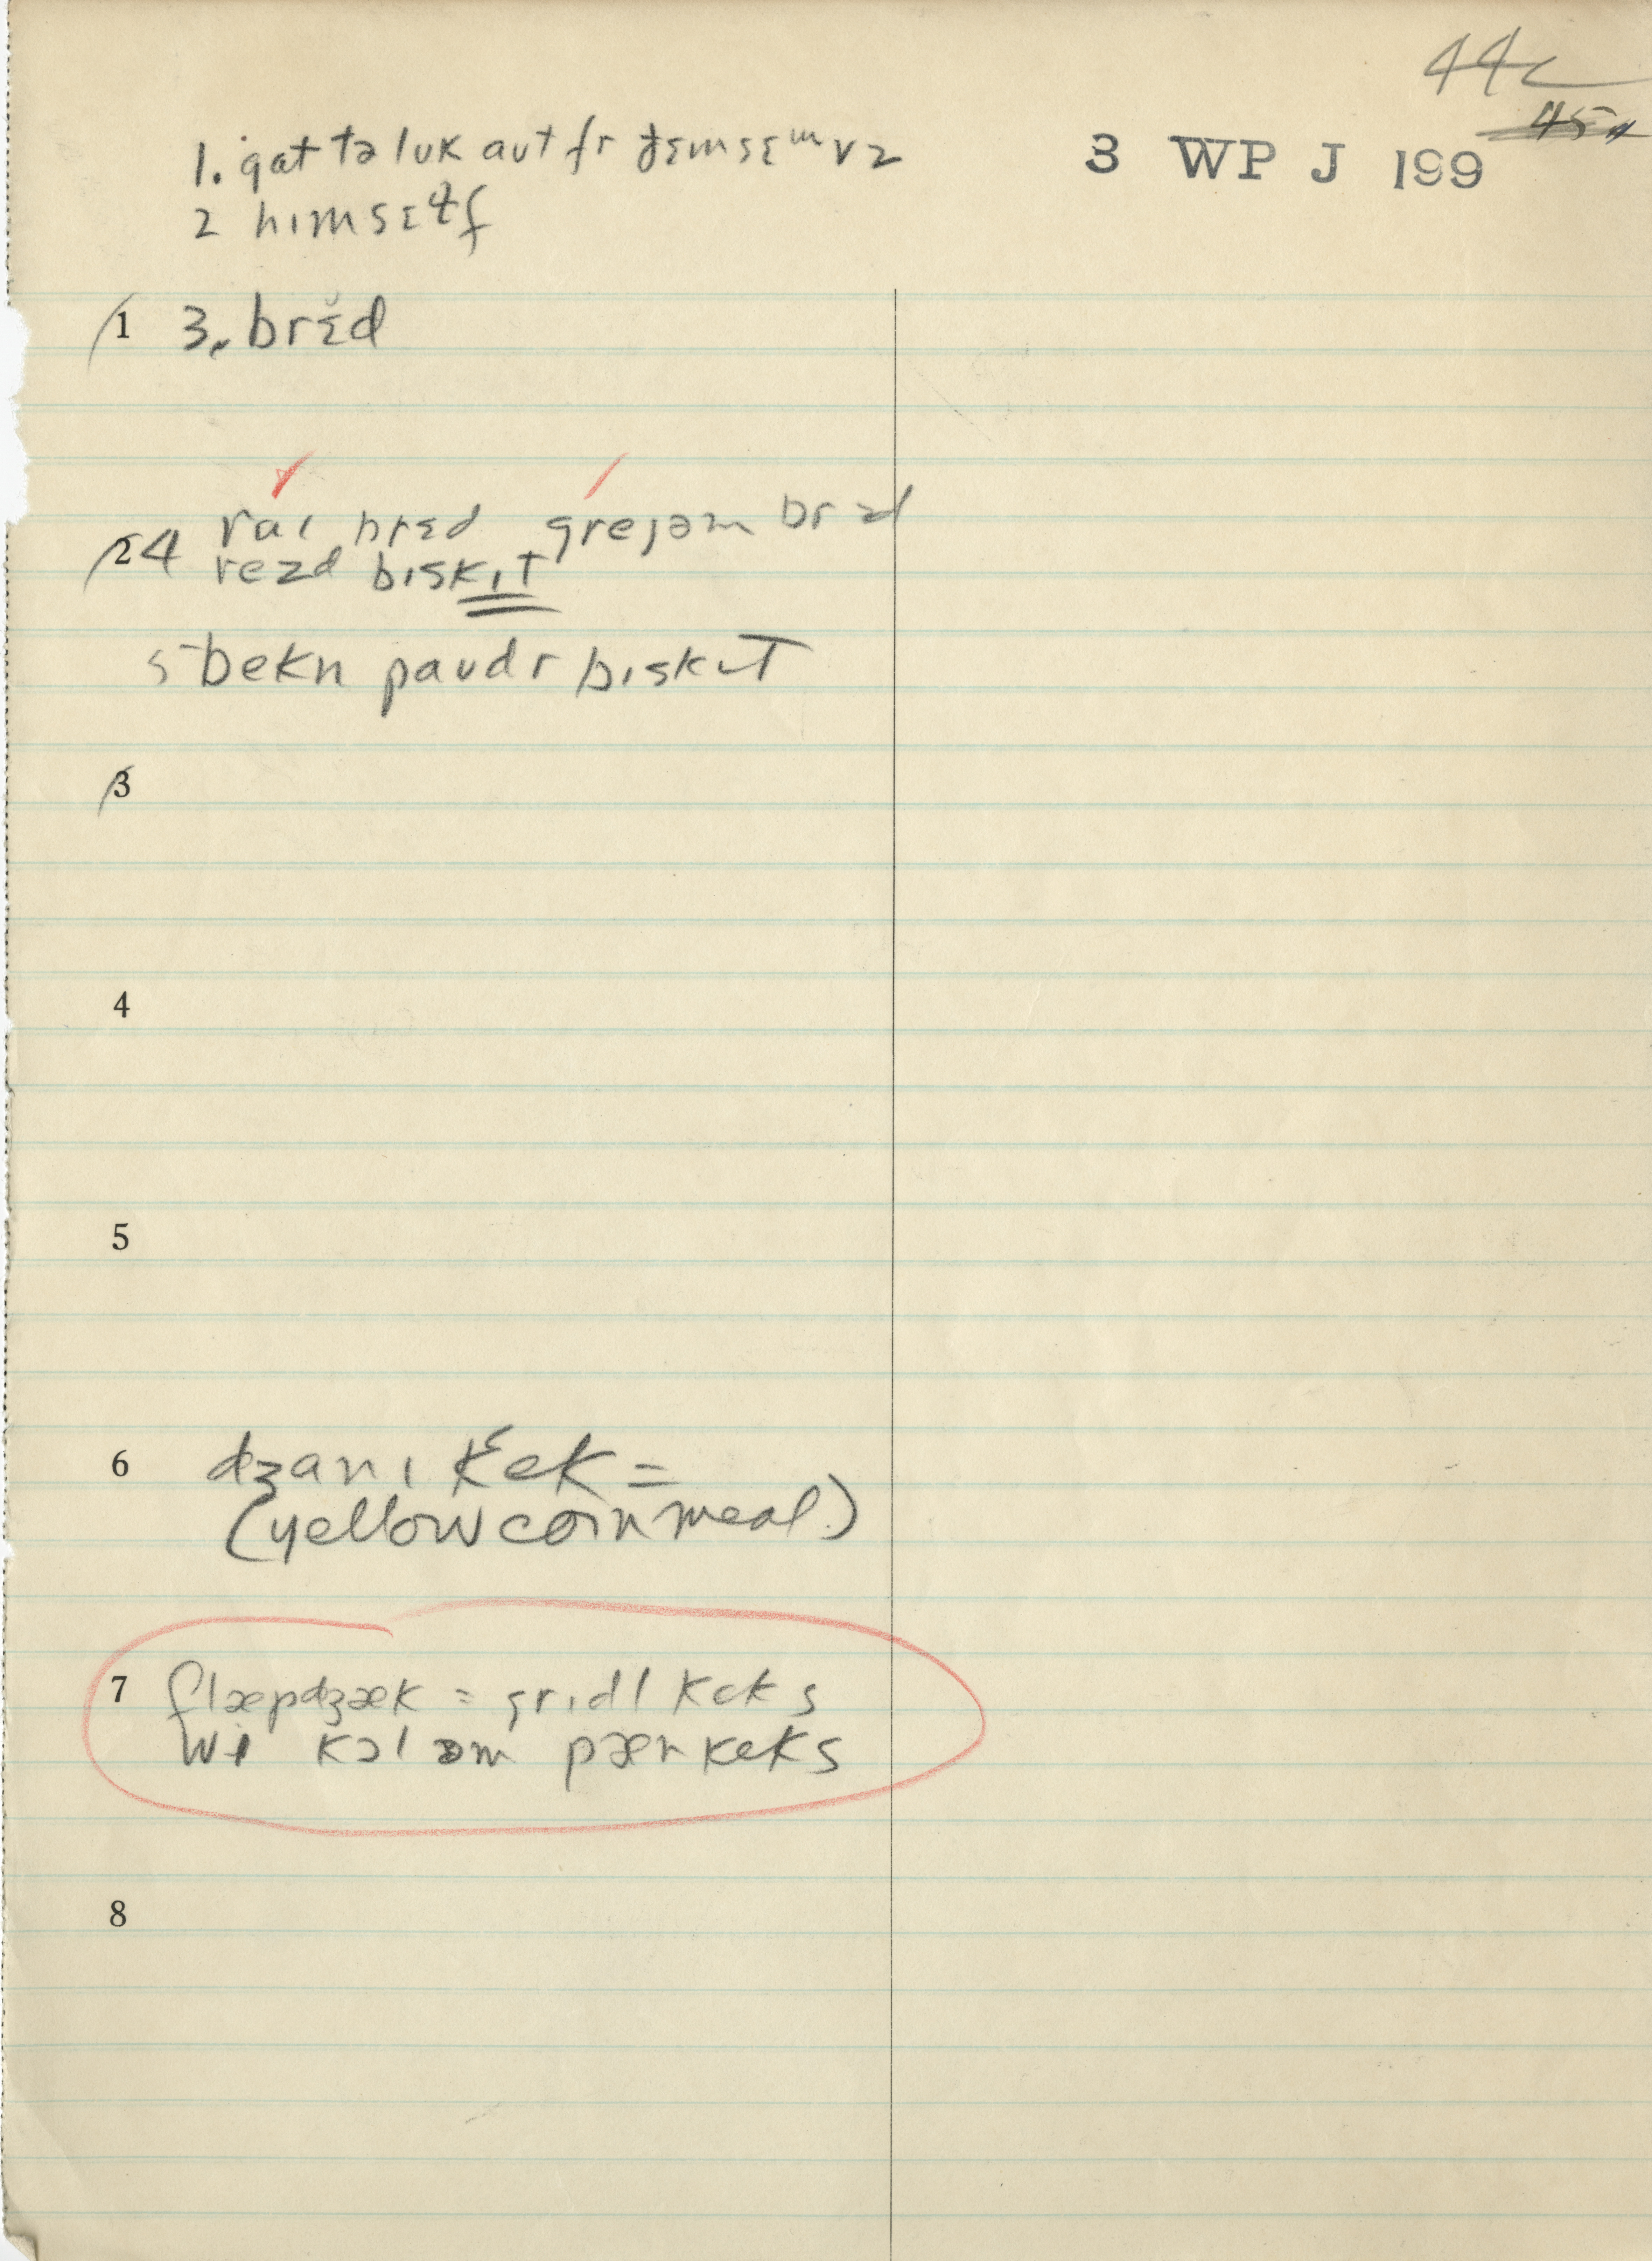 44c
45a
3 WP J 199
1. gat tə luk aut fr ðɛmsɛmvz
2 hɪmsɛɫf
1 3. brɛ̆d
raɪ brɛd grejəm brɛd
2 4 rezd bɪskɪt
5 bekn paudr bɪskɪt
3
4
5
6 dʒanɪ kɛek =
(yellow cornmeal)
7 flæpdʒæk = grɪdl keks
wi kɔl əm pæn keks
8